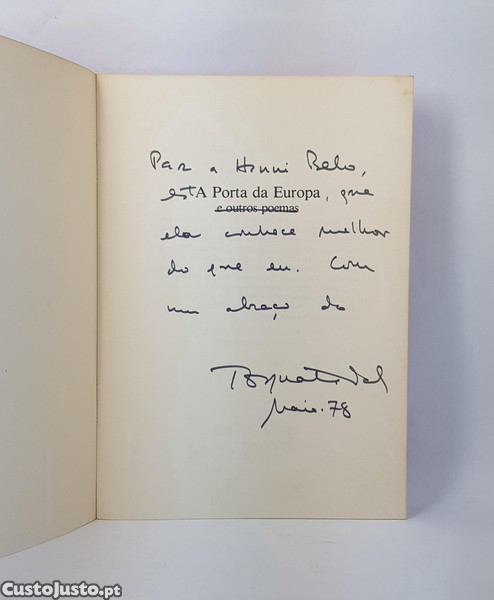 Para a Henri Belo,
esta A Porta da Europa, que
e outros poemas
ela conhece melhor
do que eu. Com
um abraço do
Maio. 78
CustoJusto.pt